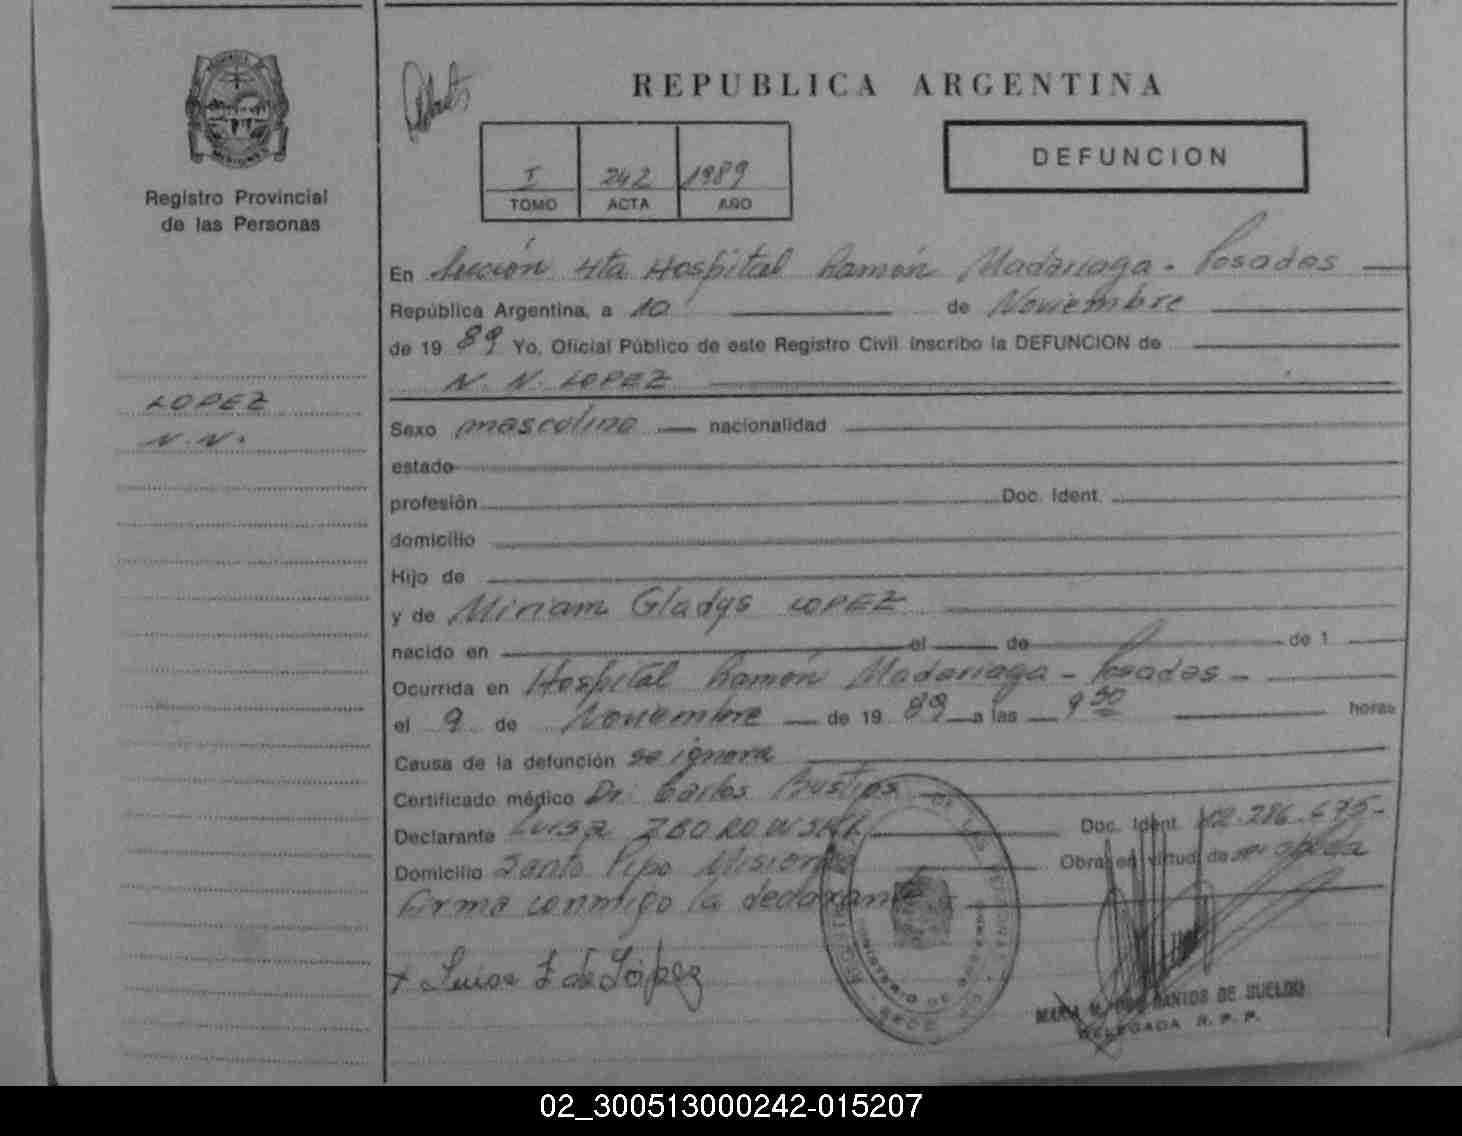 REPUBLICA ARGENTINA
DEFUNCION
I 242 1989
TOMO ACTA AÑO
Registro Provincial
de las Personas
LOPEZ
N. N.
En Sección 4ta Hospital Ramón Madariaga - Posadas
República Argentina, a 10 de Noviembre
de 1989 Yo, Oficial Público de este Registro Civil inscribo la DEFUNCION de
N. N. LOPEZ
Sexo masculino nacionalidad
estado
profesión Doc. Ident.
domicilio
Hijo de
y de Miriam Gladys LOPEZ
nacido en el de de 1
Ocurrida en Hospital Ramón Madariaga - Posadas -
el 9 de Noviembre de 1989 a las 9 30 horas
Causa de la defunción se ignora
Certificado médico Dr. Carlos Bustos
Declarante Luisa ZBOROWSKI Doc. Ident. 12.286.675-
Domicilio Santo Pipo Misiones Obra en virtud de
Firma conmigo la declarante
+ Luisa Z de López
MARIA M. DOS SANTOS DE SUELDO
DELEGADA R. P. P.
02_300513000242-015207